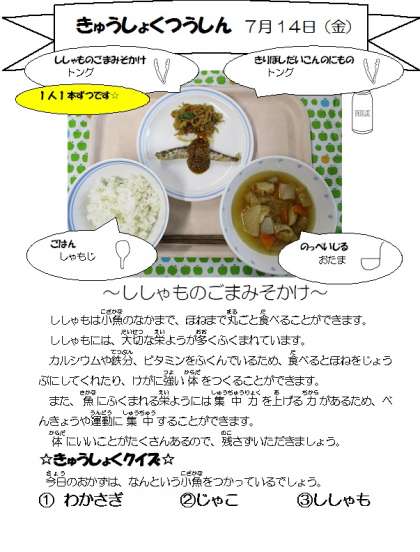 きゅうしょくつうしん ７月１４日（金）
ししゃものごまみそかけ
トング
きりぼしだいこんのにもの
トング
１人１本ずつです☆
ごはん
しゃもじ
のっぺいじる
おたま
～ししゃものごまみそかけ～
ししゃもは小魚のなかまで、ほねまで丸ごと食べることができます。
ししゃもには、大切な栄ようが多くふくまれています。
カルシウムや鉄分、ビタミンをふくんでいるため、食べるとほねをじょう
ぶにしてくれたり、けがに強い体をつくることができます。
また、魚にふくまれる栄ようには集中力を上げる力があるため、べ
んきょうや運動に集中することができます。
体にいいことがたくさんあるので、残さずいただきましょう。
☆きゅうしょくクイズ☆
今日のおかずは、なんという小魚をつかっているでしょう。
① わかさぎ ②じゃこ ③ししゃも